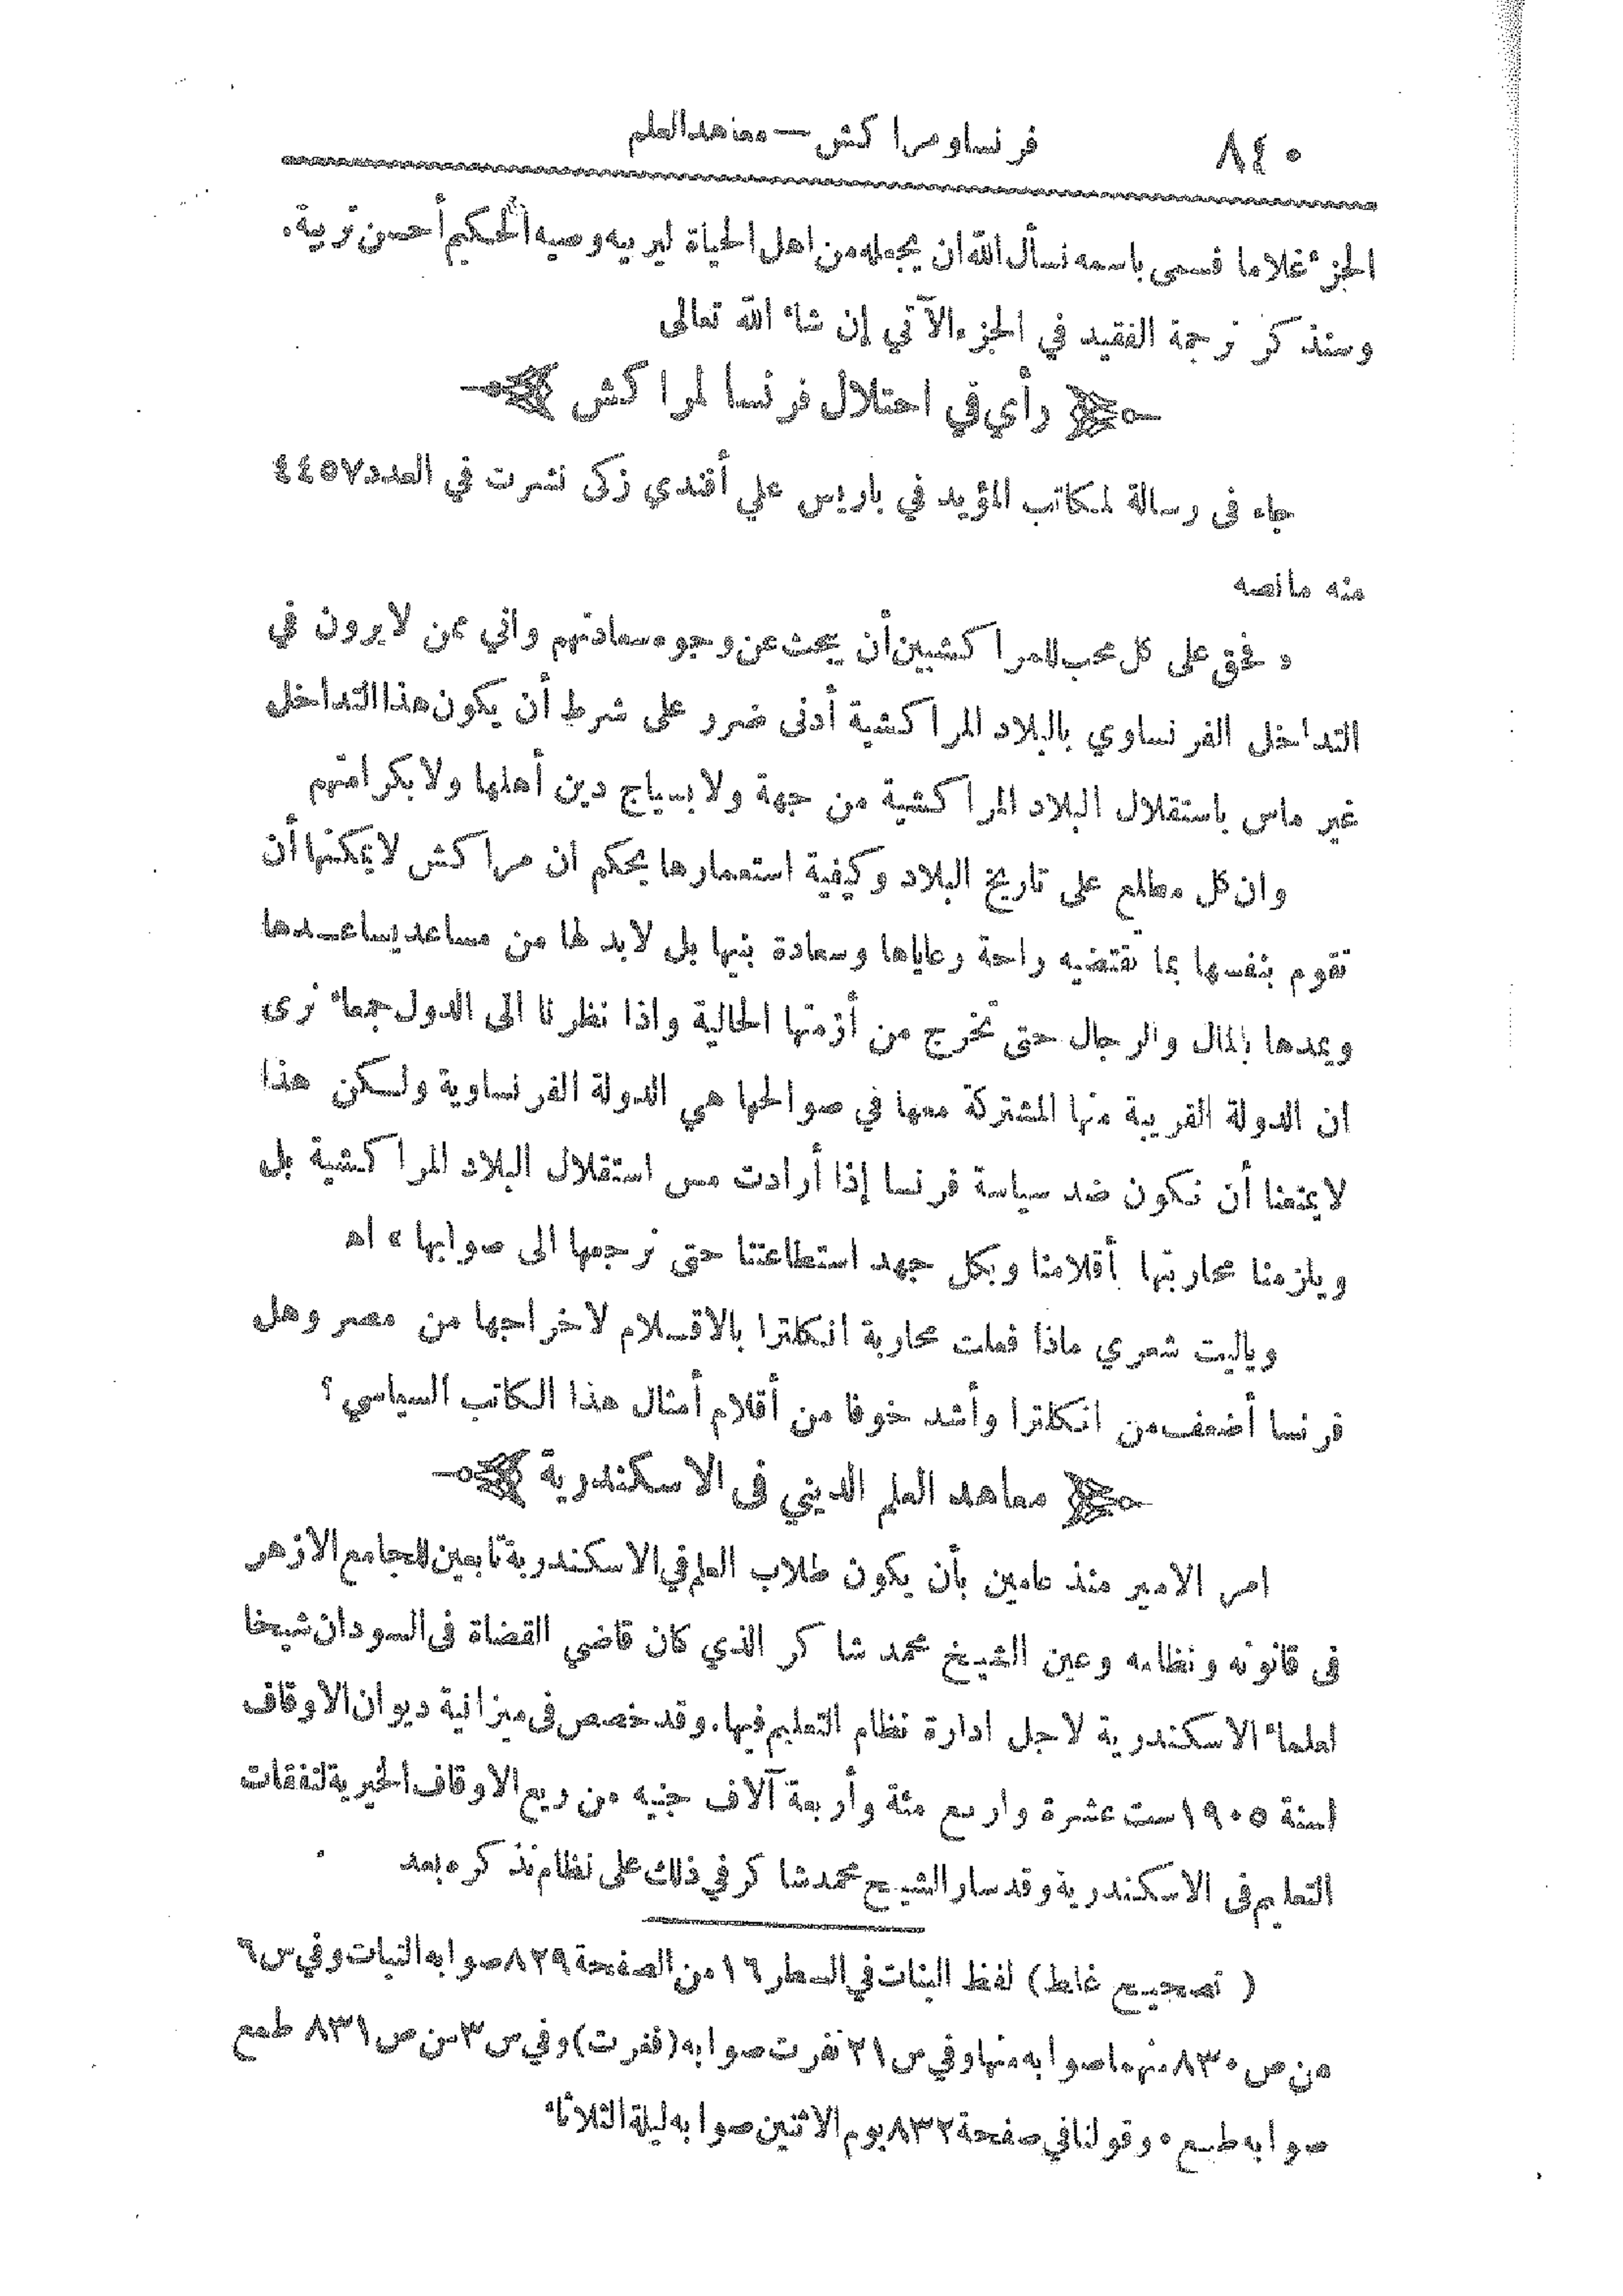 ٨٤٠
فرنسا ومراكش — معاهد العلم
الجزء غلاما فسمي باسمه نسأل الله ان يجعله من اهل الحياة ليربيه وصيه الحكيم أحسن تربية.
وسنذكر ترجمة الفقيد في الجزء الآتي إن شاء الله تعالى
رأي في احتلال فرنسا لمراكش
جاء في رسالة لمكاتب المؤيد في باريس علي أفندي زكى نشرت في العدد ٤٤٥٧
منه ما نصه
« فحق على كل محب للمراكشيين أن يبحث عن وجوه سعادتهم واني ممن لا يرون في
التداخل الفرنساوي بالبلاد المراكشية أدنى ضرر على شرط أن يكون هذا التداخل
غير ماس باستقلال البلاد المراكشية من جهة ولا بسياج دين أهلها ولا بكرامتهم
وان كل مطلع على تاريخ البلاد وكيفية استعمارها يحكم ان مراكش لا يمكنها أن
تقوم بنفسها بما تقتضيه راحة رعاياها وسعادة بنيها بل لا بد لها من مساعد يساعدها
ويمدها بالمال والرجال حتى تخرج من أزمتها الحالية واذا نظرنا الى الدول جمعاء نرى
ان الدولة القريبة منها المشتركة معها في صوالحها هي الدولة الفرنساوية ولكن هذا
لا يمنعنا أن نكون ضد سياسة فرنسا إذا أرادت مس استقلال البلاد المراكشية بل
ويلزمنا محاربتها بأقلامنا وبكل جهد استطاعتنا حتى نرجعها الى صوابها » اه
وياليت شعري ماذا فعلت محاربة انكلترا بالاقلام لاخراجها من مصر وهل
فرنسا أضعف من انكلترا وأشد خوفا من أقلام أمثال هذا الكاتب السياسي ؟
معاهد العلم الديني في الاسكندرية
امر الامير منذ عامين بأن يكون طلاب العلم في الاسكندرية تابعين للجامع الازهر
في قانونه ونظامه وعين الشيخ محمد شاكر الذي كان قاضي القضاة في السودان شيخا
لعلماء الاسكندرية لاجل ادارة نظام التعليم فيها. وقد خصص في ميزانية ديوان الاوقاف
لسنة ١٩٠٥ ست عشرة واربع مئة وأربعة آلاف جنيه من ريع الاوقاف الخيرية لنفقات
التعليم في الاسكندرية وقد سار الشيخ محمد شاكر في ذلك على نظام نذكره بعد
( تصحيح غلط ) لفظ البنات في السطر ١٦ من الصفحة ٨٢٩ صوابه النبات وفي س ٦
من ص ٨٣٠ منهما صوابه منها وفي س ٢١ نفرت صوابه (ففرت) وفي س ٣ من ص ٨٣١ طمع
صوابه طبع ٠ وقولنا في صفحة ٨٣٢ يوم الاثنين صوابه ليلة الثلاثاء